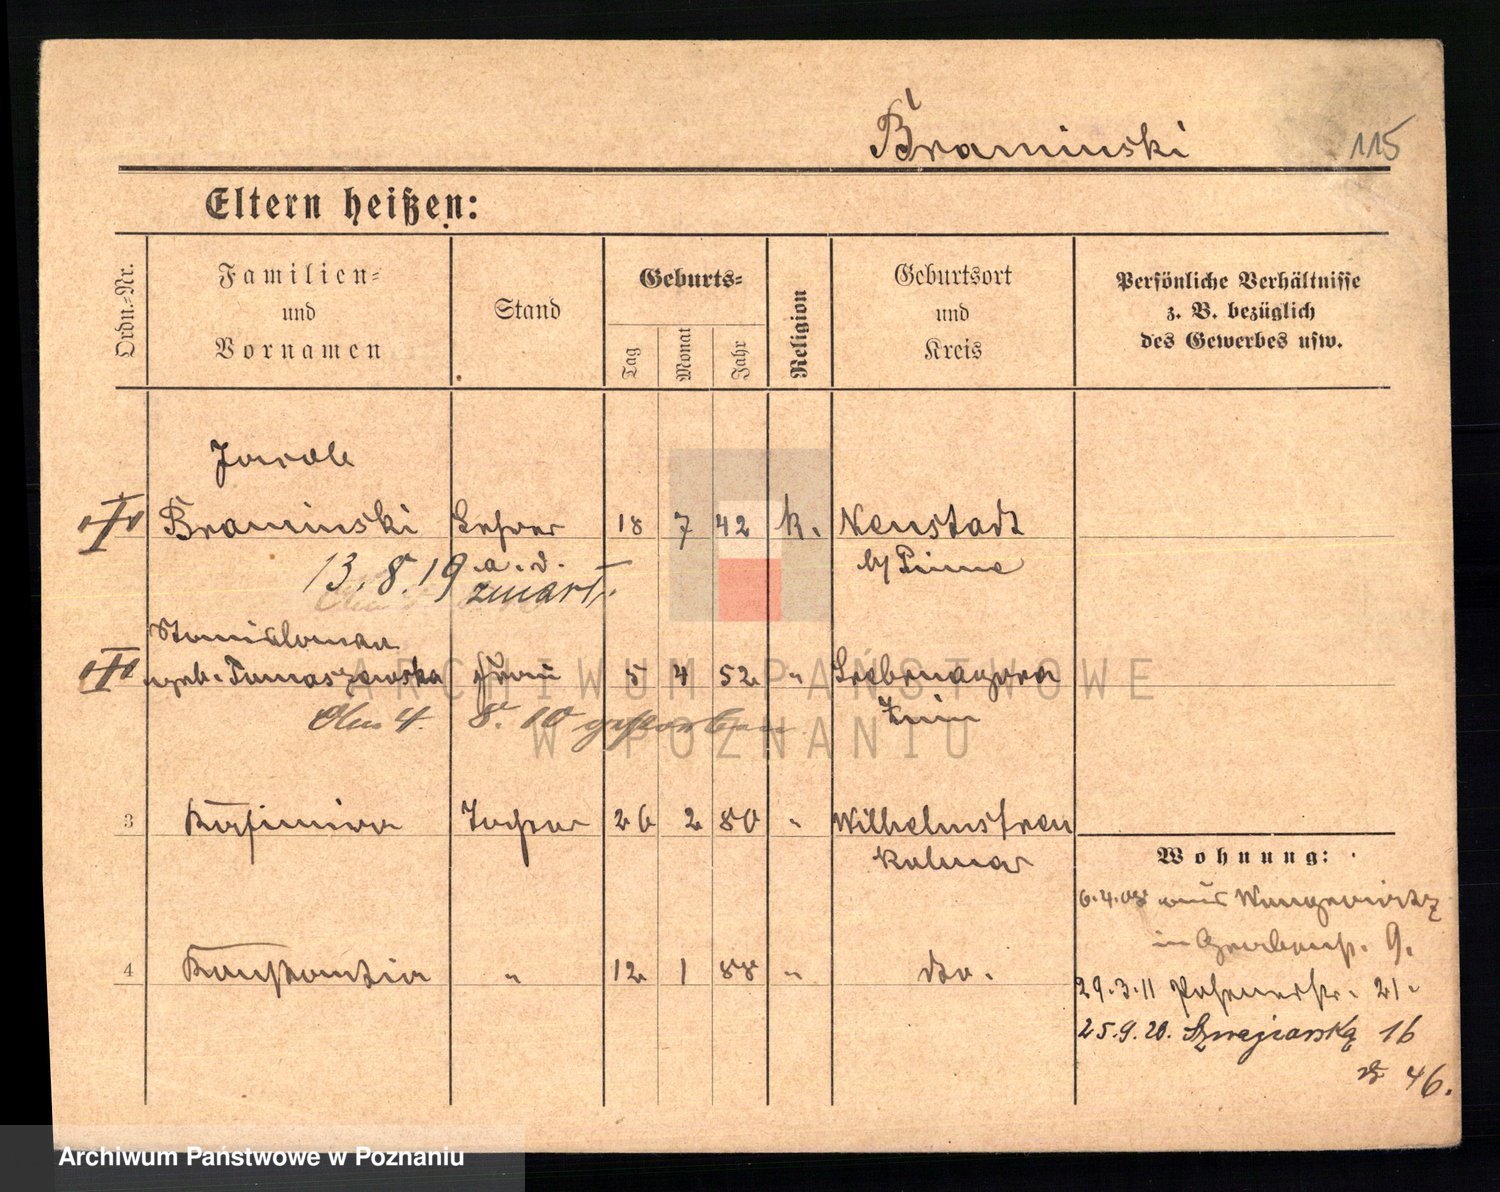 Braminski 115
Eltern heißen:
Ordn.-Nr.
Familien-
und
Vornamen
Stand
Geburts-
Tag
Monat
Jahr
Religion
Geburtsort
und
Kreis
Persönliche Verhältnisse
z. B. bezüglich
des Gewerbes usw.
Jacob
Braminski Lehrer 18 7 42 k. Neustadt
a. D. b/ Pinne
13. 8. 19 zmarł.
Stanislawa
geb. Tomaszewska Frau 5 4 52 " Srebrnagora
Znin
4. 8. 10 gestorben
3 Kasimira Tochter 26 2 80 " Wilhelmstreu
Kolmar
4 Konstantia " 12 1 88 " do.
Wohnung:
6.4.08 aus Wongrowitz
in Grabenstr. 9.
29.3.11 Posenerstr. 21.
25.9.20. Szwajcarska 16
46.
ARCHIWUM PAŃSTWOWE
W POZNANIU
Archiwum Państwowe w Poznaniu